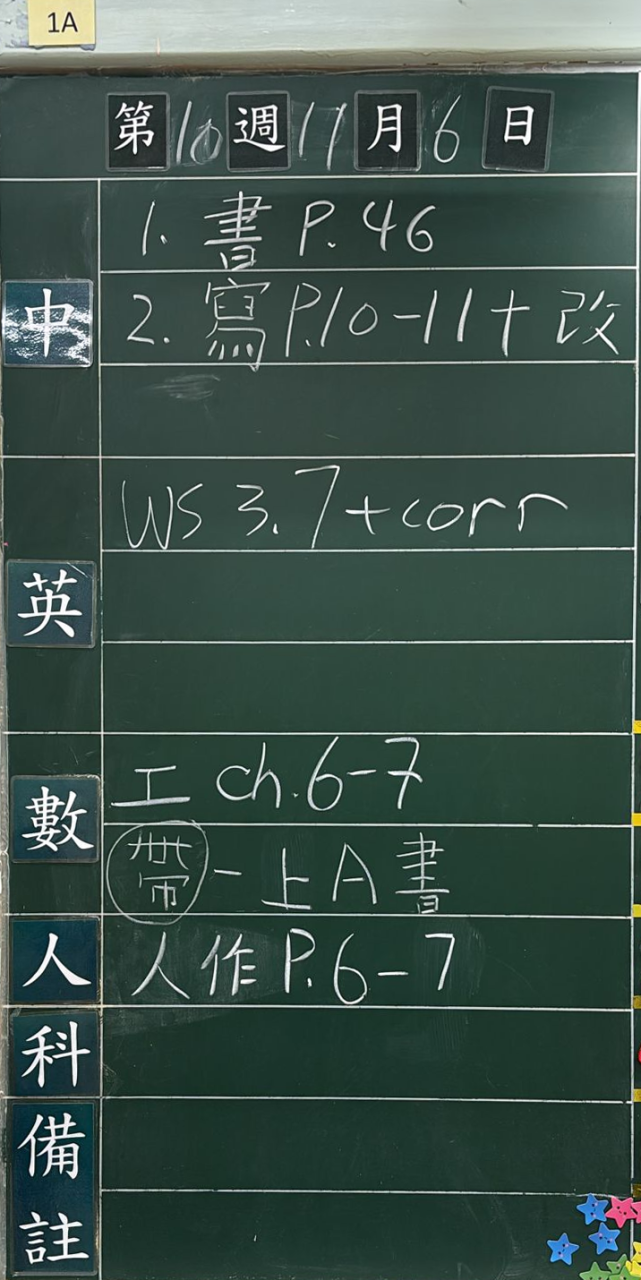 1A
第10週11月6日
中
1. 書 P.46
2. 寫 P.10-11+改
英
WS 3.7+corr
數
工 ch.6-7
帶-上A書
人
人作 P.6-7
科
備註